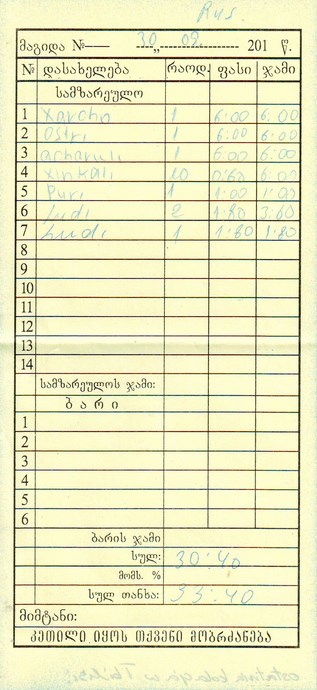 Rus.
მაგიდა №— 30 „ 09 201 წ.
№ დასახელება რაოდ. ფასი ჯამი
სამზარეულო
1 Xarcho 1 6:00 6:00
2 Ostri 1 6:00 6:00
3 acharuli 1 6:00 6:00
4 xinkali 10 0:60 6:00
5 Puri 1 1:00 1:00
6 Ludi 2 1:80 3:60
7 Ludi 1 1:80 1:80
8
9
10
11
12
13
14
სამზარეულოს ჯამი:
ბარი
1
2
3
4
5
6
ბარის ჯამი
სულ: 30:40
მომს. %
სულ თანხა: 33:40
მიმტანი:
კეთილი იყოს თქვენი მობრძანება